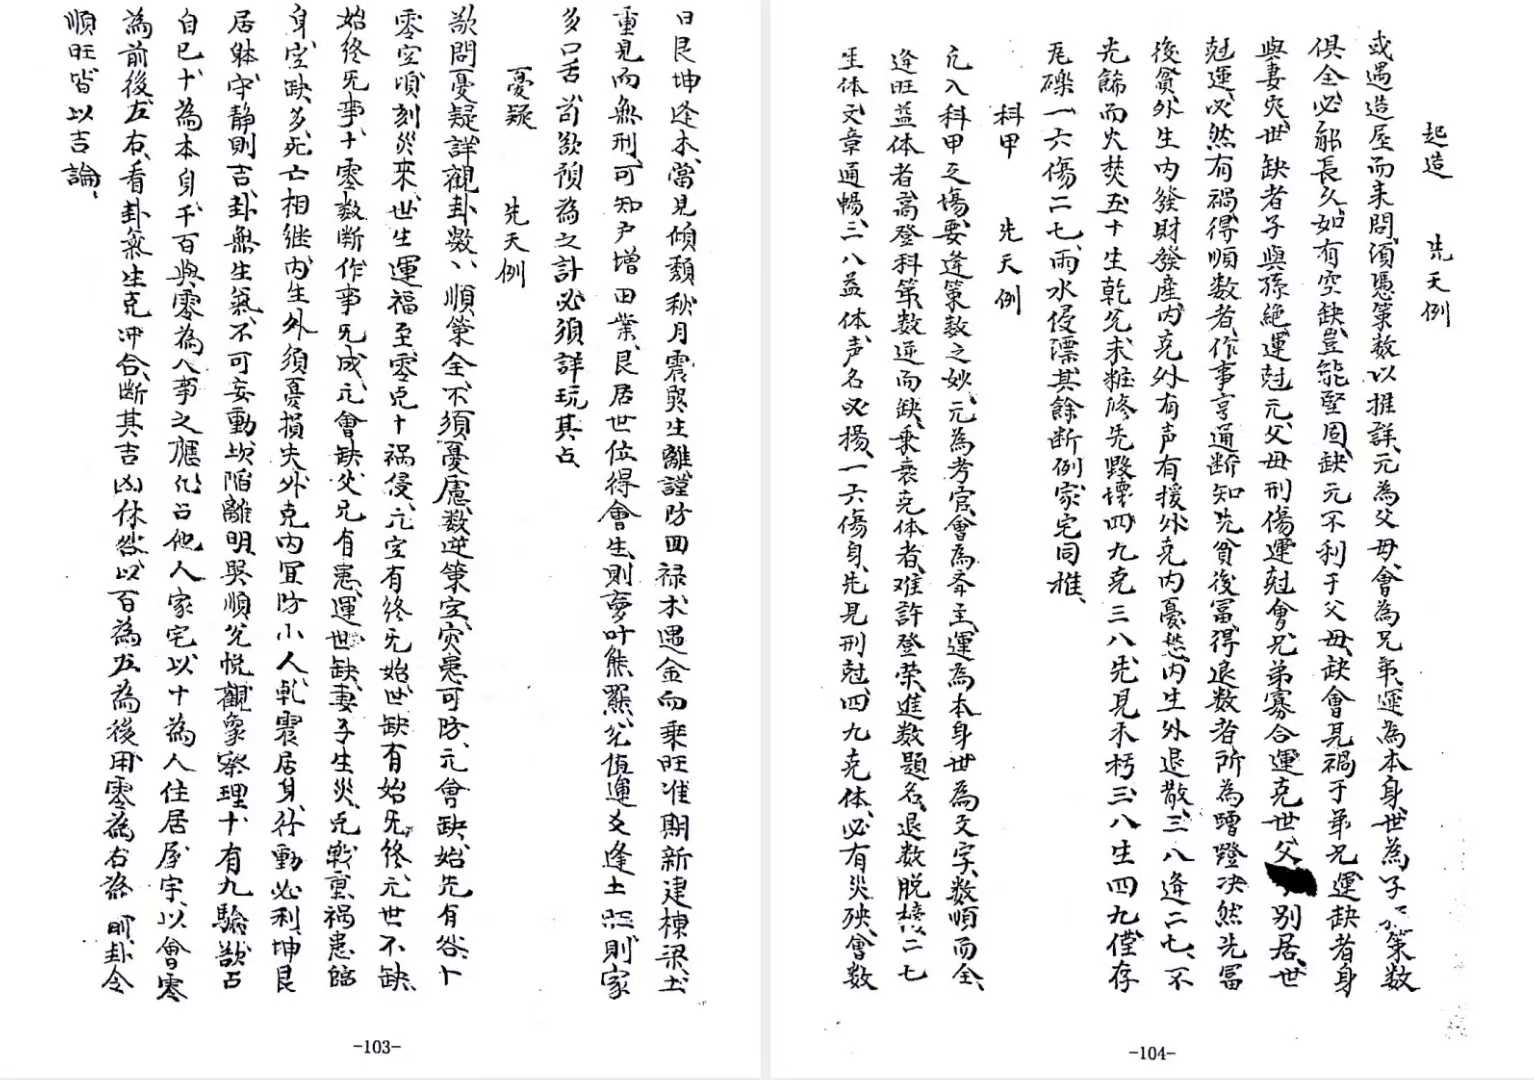 日艮坤逢木、當見傾頹秋月震巽生離謹防回禄木遇金而乘旺准期新建棟梁土
重見而無刑可知户增田業艮居世位得會生則夢叶熊羆兌值運爻逢土則家
多口舌苟欲預為之計必須詳玩其占
憂疑 先天例
欲問憂疑詳觀卦数順策全不須憂慮数逆策空灾患可防元會缺始先有咎卜
零空頃刻災來世生運福至零克十禍侵元空有終旡始世缺有始旡終元世不缺
始終旡事十零数斷作事旡成元會缺父兄有患運世缺妻子生災克戰重禍患臨
身空缺多死亡相継内生外須憂損失外克内宜防小人乾震居身行動必利坤艮
居躰守静則吉卦無生氣不可妄動坎陷離明巽順兌悦觀象察理十有九驗欲占
自己十為本身千百與零為人事之應化占他人家宅以十為人住居屋宇以會零
為前後左右看卦氣生克冲合斷其吉凶休咎以百為左為後用零為右為前卦令
順旺皆以吉論、
-103-
起造 先天例
或遇造屋而来問須憑策数以推詳元為父母會為兄弟運為本身世為子策数
俱全必能長久如有空缺豈能堅固缺元不利于父母缺會見禍于弟兄運缺者身
與妻灾世缺者子與孫絶運尅元父母刑傷運尅會兄弟寡合運克世父别居世
尅運必然有禍得順数者作事亨通断知先貧後冨得退数者所為蹭蹬决然先冨
後貧外生内發財發産内克外有声有援外克内憂愁内生外退散三八逢二七不
先餙而火焚五十生乾兌求粧修先毁壞四九克三八先見木朽三八生四九僅存
瓦礫一六傷二七雨水侵漂其餘断例家宅同推、
科甲 先天例
亢入科甲之塲要逢策数之妙元為考官會為斋主運為本身世為文字数順而全、
逢旺益体者高登科第数逆而缺乘衰克体者难許登荣進数題名退数脱榜二七
生体文章通暢三八益体声名必揚一六傷身先見刑尅四九克体必有災殃會数
-104-